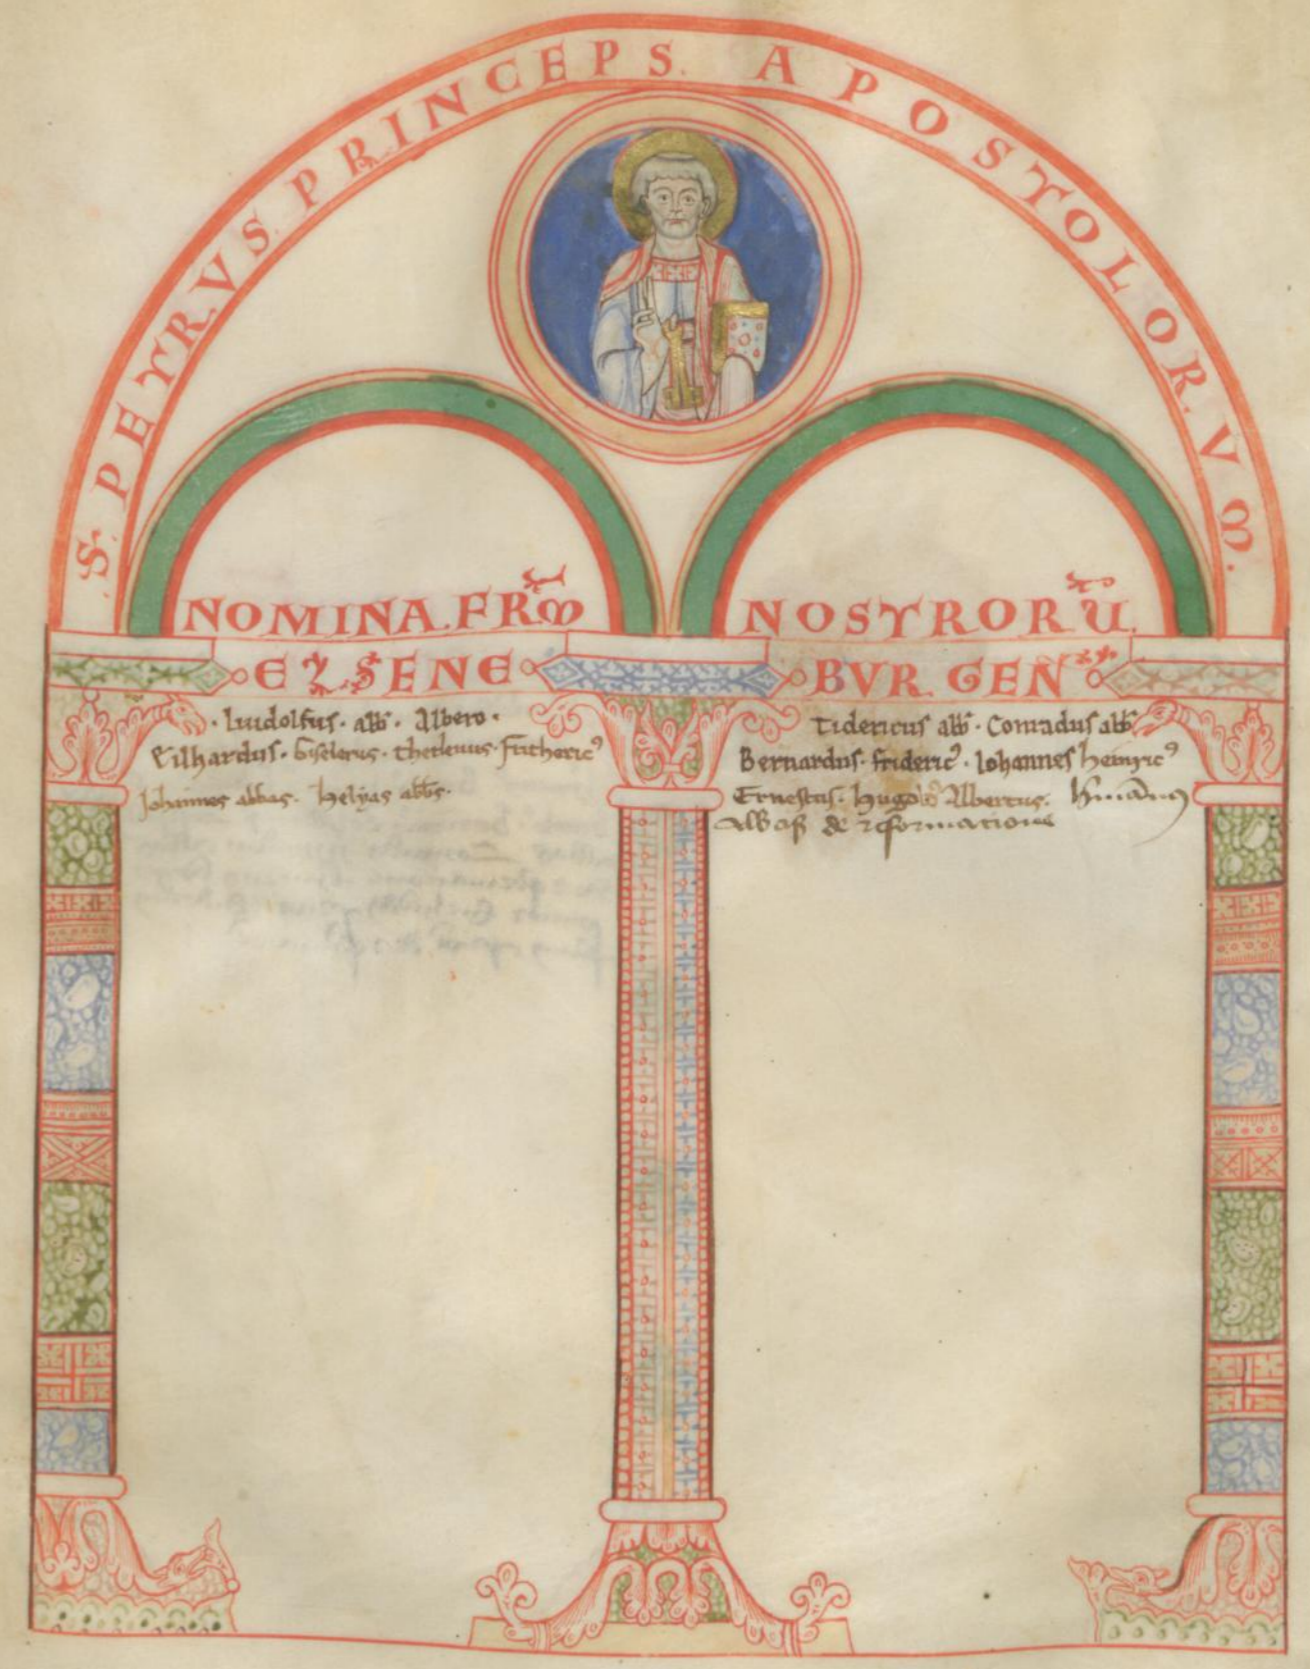 S. PETRVS PRINCEPS. APOSTOLORVM.
NOMINA. FRM̄ NOSTRORŪ.
EYSENE BVRGEN̄
· Liudolfus · abb̄ · Albero ·
Eilhardus · Giselerus · thetlenus · fritheric⁹
Johannes abbas. helyas abb̄s.
Tidericus abb̄ · Conradus abb̄
Bernardus · frideric⁹ · Iohannes heinric⁹
Ernestus · hugold⁹ Albertus.
de reformatione